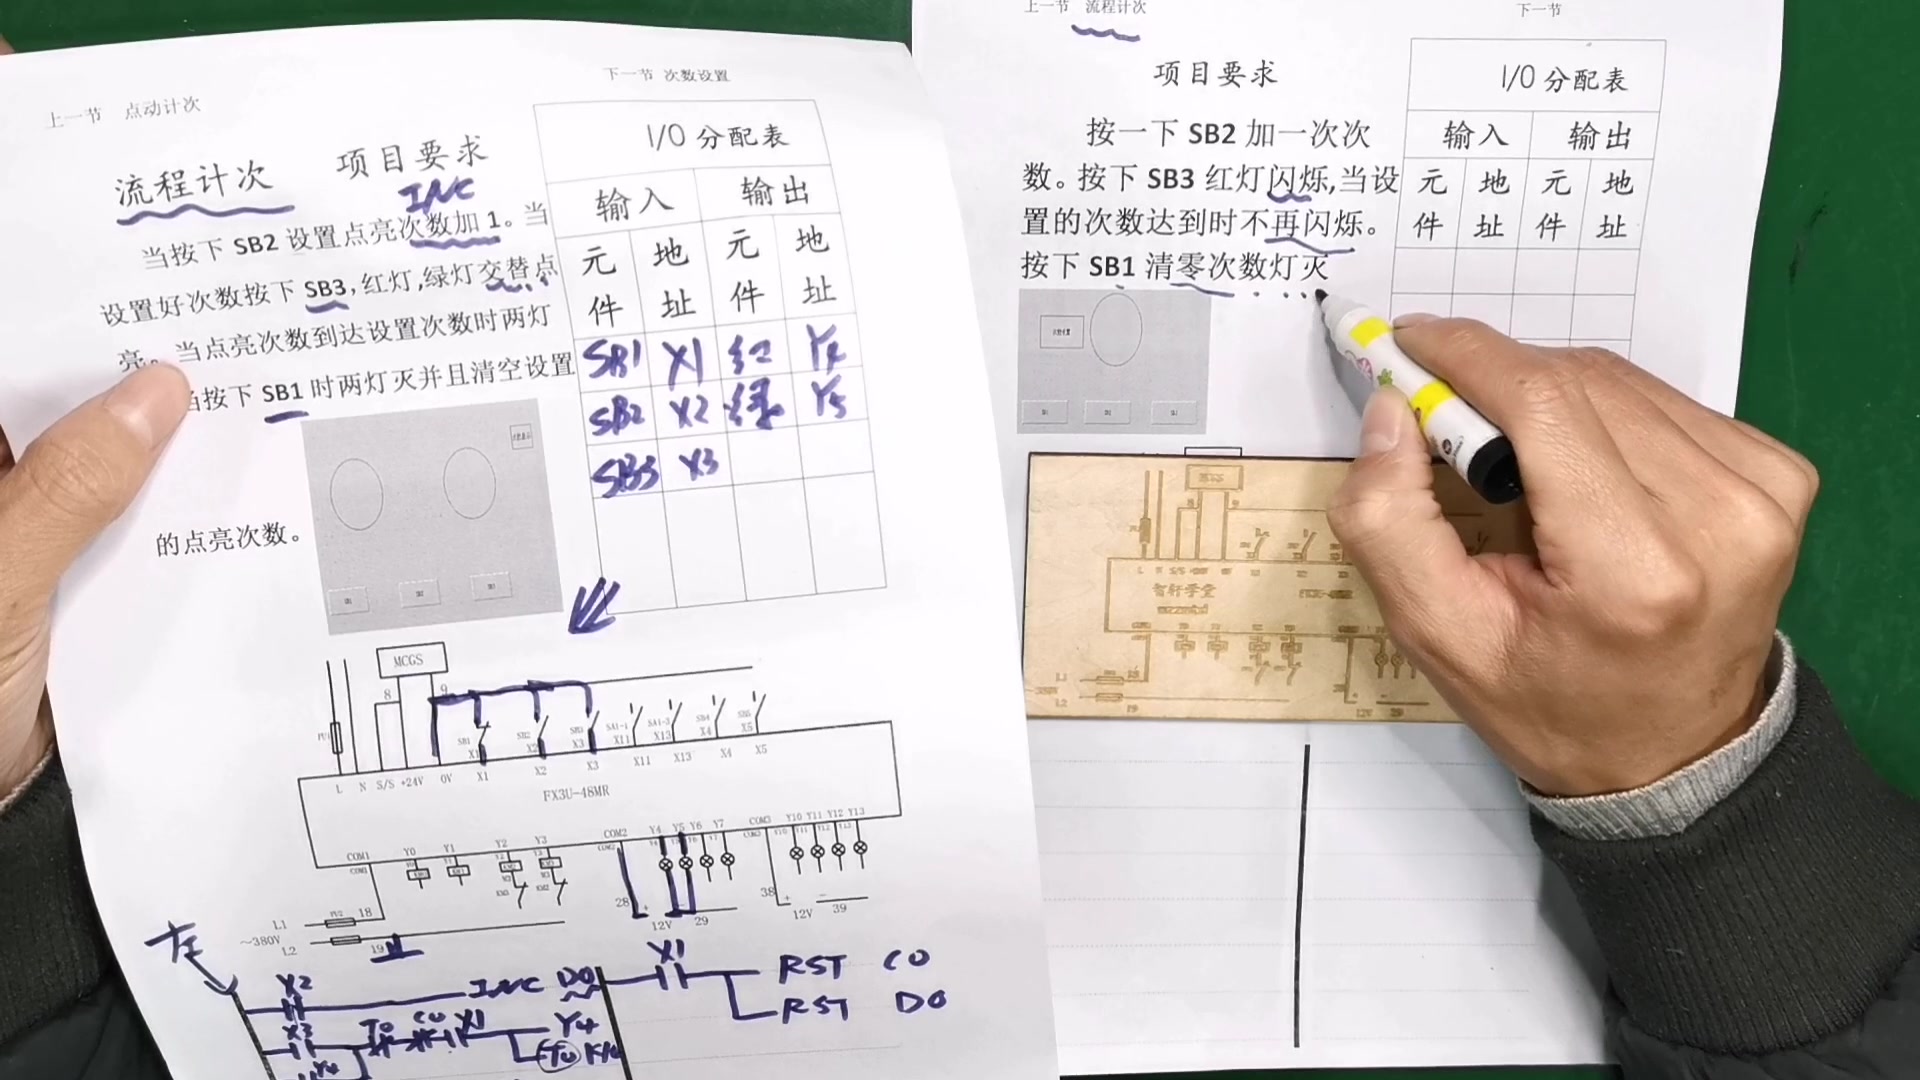 上一节 点动计次
下一节 次数设置
流程计次
项目要求
INC
当按下 SB2 设置点亮次数加 1。当
设置好次数按下 SB3,红灯,绿灯交替点
亮。当点亮次数到达设置次数时两灯
按下 SB1 时两灯灭并且清空设置
的点亮次数。
I/O 分配表
输入 输出
元件 地址 元件 地址
SB1 X1 红 Y4
SB2 X2 绿 Y5
SB3 X3
MCGS
8 9
SB1 SB2 SB3 SA1-1 SA1-3 SB4 SB5
X1 X2 X3 X11 X13 X4 X5
L N S/S +24V 0V X1 X2 X3 X11 X13 X4 X5
FX3U-48MR
COM1 Y0 Y1 Y2 Y3 COM2 Y4 Y5 Y6 Y7 COM3 Y10 Y11 Y12 Y13
L1 18
~380V
L2 19
28 12V 29
38 12V 39
X2 INC D0
X3 T0 C0 X1 Y4
Y4 T0 K10
X1 RST C0
RST D0
上一节 流程计次
下一节
项目要求
按一下 SB2 加一次次
数。按下 SB3 红灯闪烁,当设
置的次数达到时不再闪烁。
按下 SB1 清零次数灯灭
I/O 分配表
输入 输出
元件 地址 元件 地址
智轩学堂
L1
380V
L2 19
12V 29